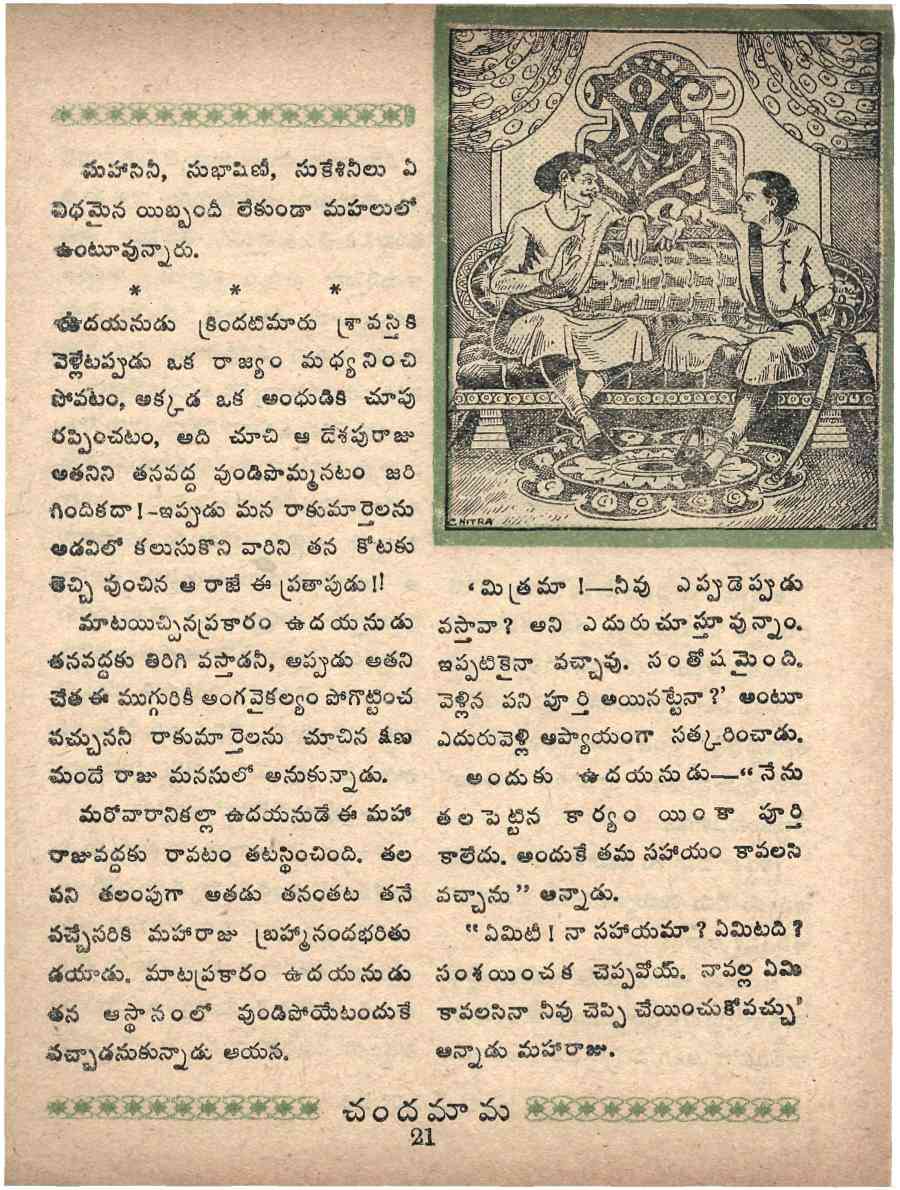 మహాసినీ, సుభాషిణీ, సుకేశినీలు ఏ
విధమైన యిబ్బందీ లేకుండా మహలులో
ఉంటూవున్నారు.
* * *
ఉదయనుడు క్రిందటిమారు శ్రావస్తికి
వెళ్లేటప్పుడు ఒక రాజ్యం మధ్యనించి
పోవటం, అక్కడ ఒక అంధుడికి చూపు
రప్పించటం, అది చూచి ఆ దేశపురాజు
అతనిని తనవద్ద వుండిపొమ్మనటం జరి
గిందికదా!-ఇప్పుడు మన రాకుమార్తెలను
అడవిలో కలుసుకొని వారిని తన కోటకు
తెచ్చి వుంచిన ఆ రాజే ఈ ప్రతాపుడు!!
మాటయిచ్చినప్రకారం ఉదయనుడు
తనవద్దకు తిరిగి వస్తాడనీ, అప్పుడు అతని
చేత ఈ ముగ్గురికీ అంగవైకల్యం పోగొట్టించ
వచ్చుననీ రాకుమార్తెలను చూచిన క్షణ
మందే రాజు మనసులో అనుకున్నాడు.
మరోవారానికల్లా ఉదయనుడే ఈ మహా
రాజువద్దకు రావటం తటస్థించింది. తల
వని తలంపుగా అతడు తనంతట తనే
వచ్చేసరికి మహారాజు బ్రహ్మానందభరితు
డయాడు. మాటప్రకారం ఉదయనుడు
తన ఆస్థానంలో వుండిపోయేటందుకే
వచ్చాడనుకున్నాడు ఆయన.
CHITRA
‘మిత్రమా!—నీవు ఎప్పుడెప్పుడు
వస్తావా? అని ఎదురుచూస్తూవున్నాం.
ఇప్పటికైనా వచ్చావు. సంతోషమైంది.
వెళ్లిన పని పూర్తి అయినట్టేనా?’ అంటూ
ఎదురువెళ్లి ఆప్యాయంగా సత్కరించాడు.
అందుకు ఉదయనుడు—“నేను
తలపెట్టిన కార్యం యింకా పూర్తి
కాలేదు. అందుకే తమ సహాయం కావలసి
వచ్చాను” అన్నాడు.
“ఏమిటీ! నా సహాయమా? ఏమిటది?
సంశయించక చెప్పవోయ్. నావల్ల ఏమి
కావలసినా నీవు చెప్పి చేయించుకోవచ్చు’
అన్నాడు మహారాజు.
చందమామ
21